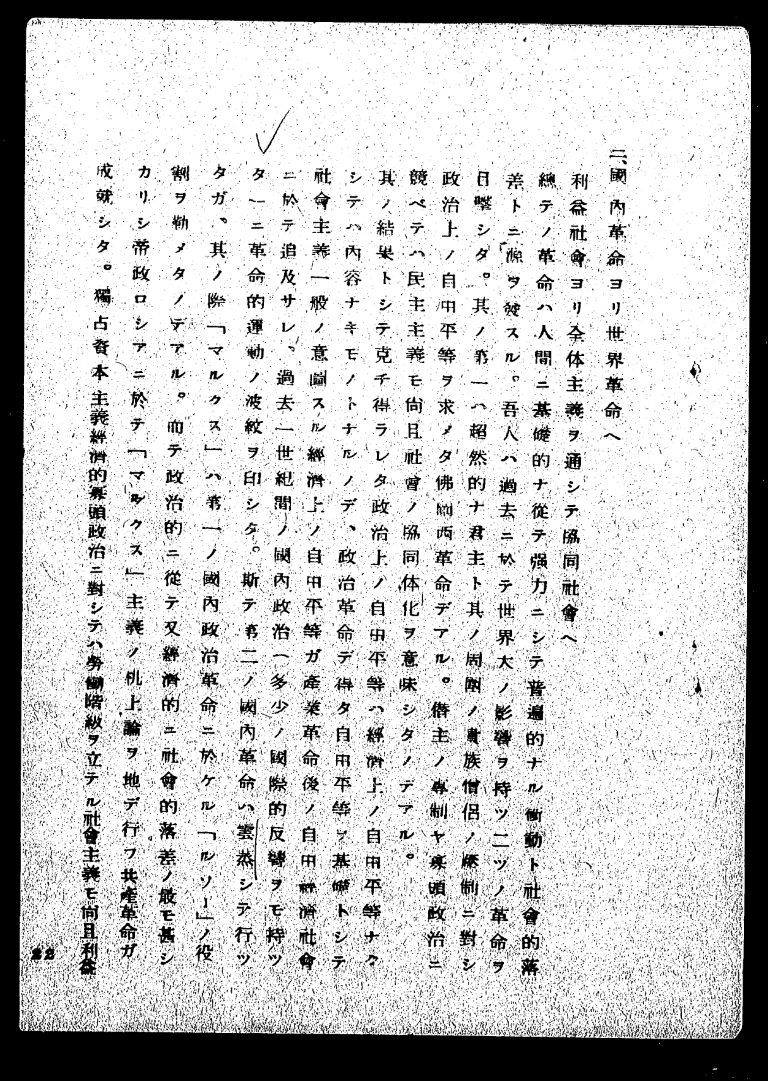 二、國內革命ヨリ世界革命ヘ
利益社會ヨリ全体主義ヲ通シテ協同社會ヘ
總テノ革命ハ人間ニ基礎的ナ從テ强力ニシテ普遍的ナル衝動ト社會的落
差トニ源ヲ發スル。吾人ハ過去ニ於テ世界大ノ影響ヲ持ツ二ツノ革命ヲ
目擊シタ。其ノ第一ハ超然的ナ君主ト其ノ周圍ノ貴族僧侶ノ壓制ニ對シ
政治上ノ自由平等ヲ求メタ佛蘭西革命デアル。僭主ノ專制ヤ寡頭政治ニ
競ベテハ民主主義モ尙且社會ノ協同体化ヲ意味シタノデアル。
其ノ結果トシテ克チ得ラレタ政治上ノ自由平等ハ經濟上ノ自由平等ナク
シテハ內容ナキモノトナルノデ、政治革命デ得タ自由平等ヲ基礎トシテ
社會主義一般ノ意圖スル經濟上ノ自由平等ガ產業革命後ノ自由經濟社會
ニ於テ追及サレ、過去一世紀間ノ國內政治(多少ノ國際的反響ヲモ持ツ
タ)ニ革命的運動ノ波紋ヲ印シタ。斯テ第二ノ國內革命ハ雲蒸シテ行ツ
タガ、其ノ際「マルクス」ハ第一ノ國內政治革命ニ於ケル「ルソー」ノ役
割ヲ勒メタノデアル。而テ政治的ニ從テ又經濟的ニ社會的落差ノ最モ甚シ
カリシ帝政ロシアニ於テ「マルクス」主義ノ机上論ヲ地デ行フ共產革命ガ
成就シタ。獨占資本主義經濟的寡頭政治ニ對シテハ勞働階級ヲ立テル社會主義モ尙且利益
22